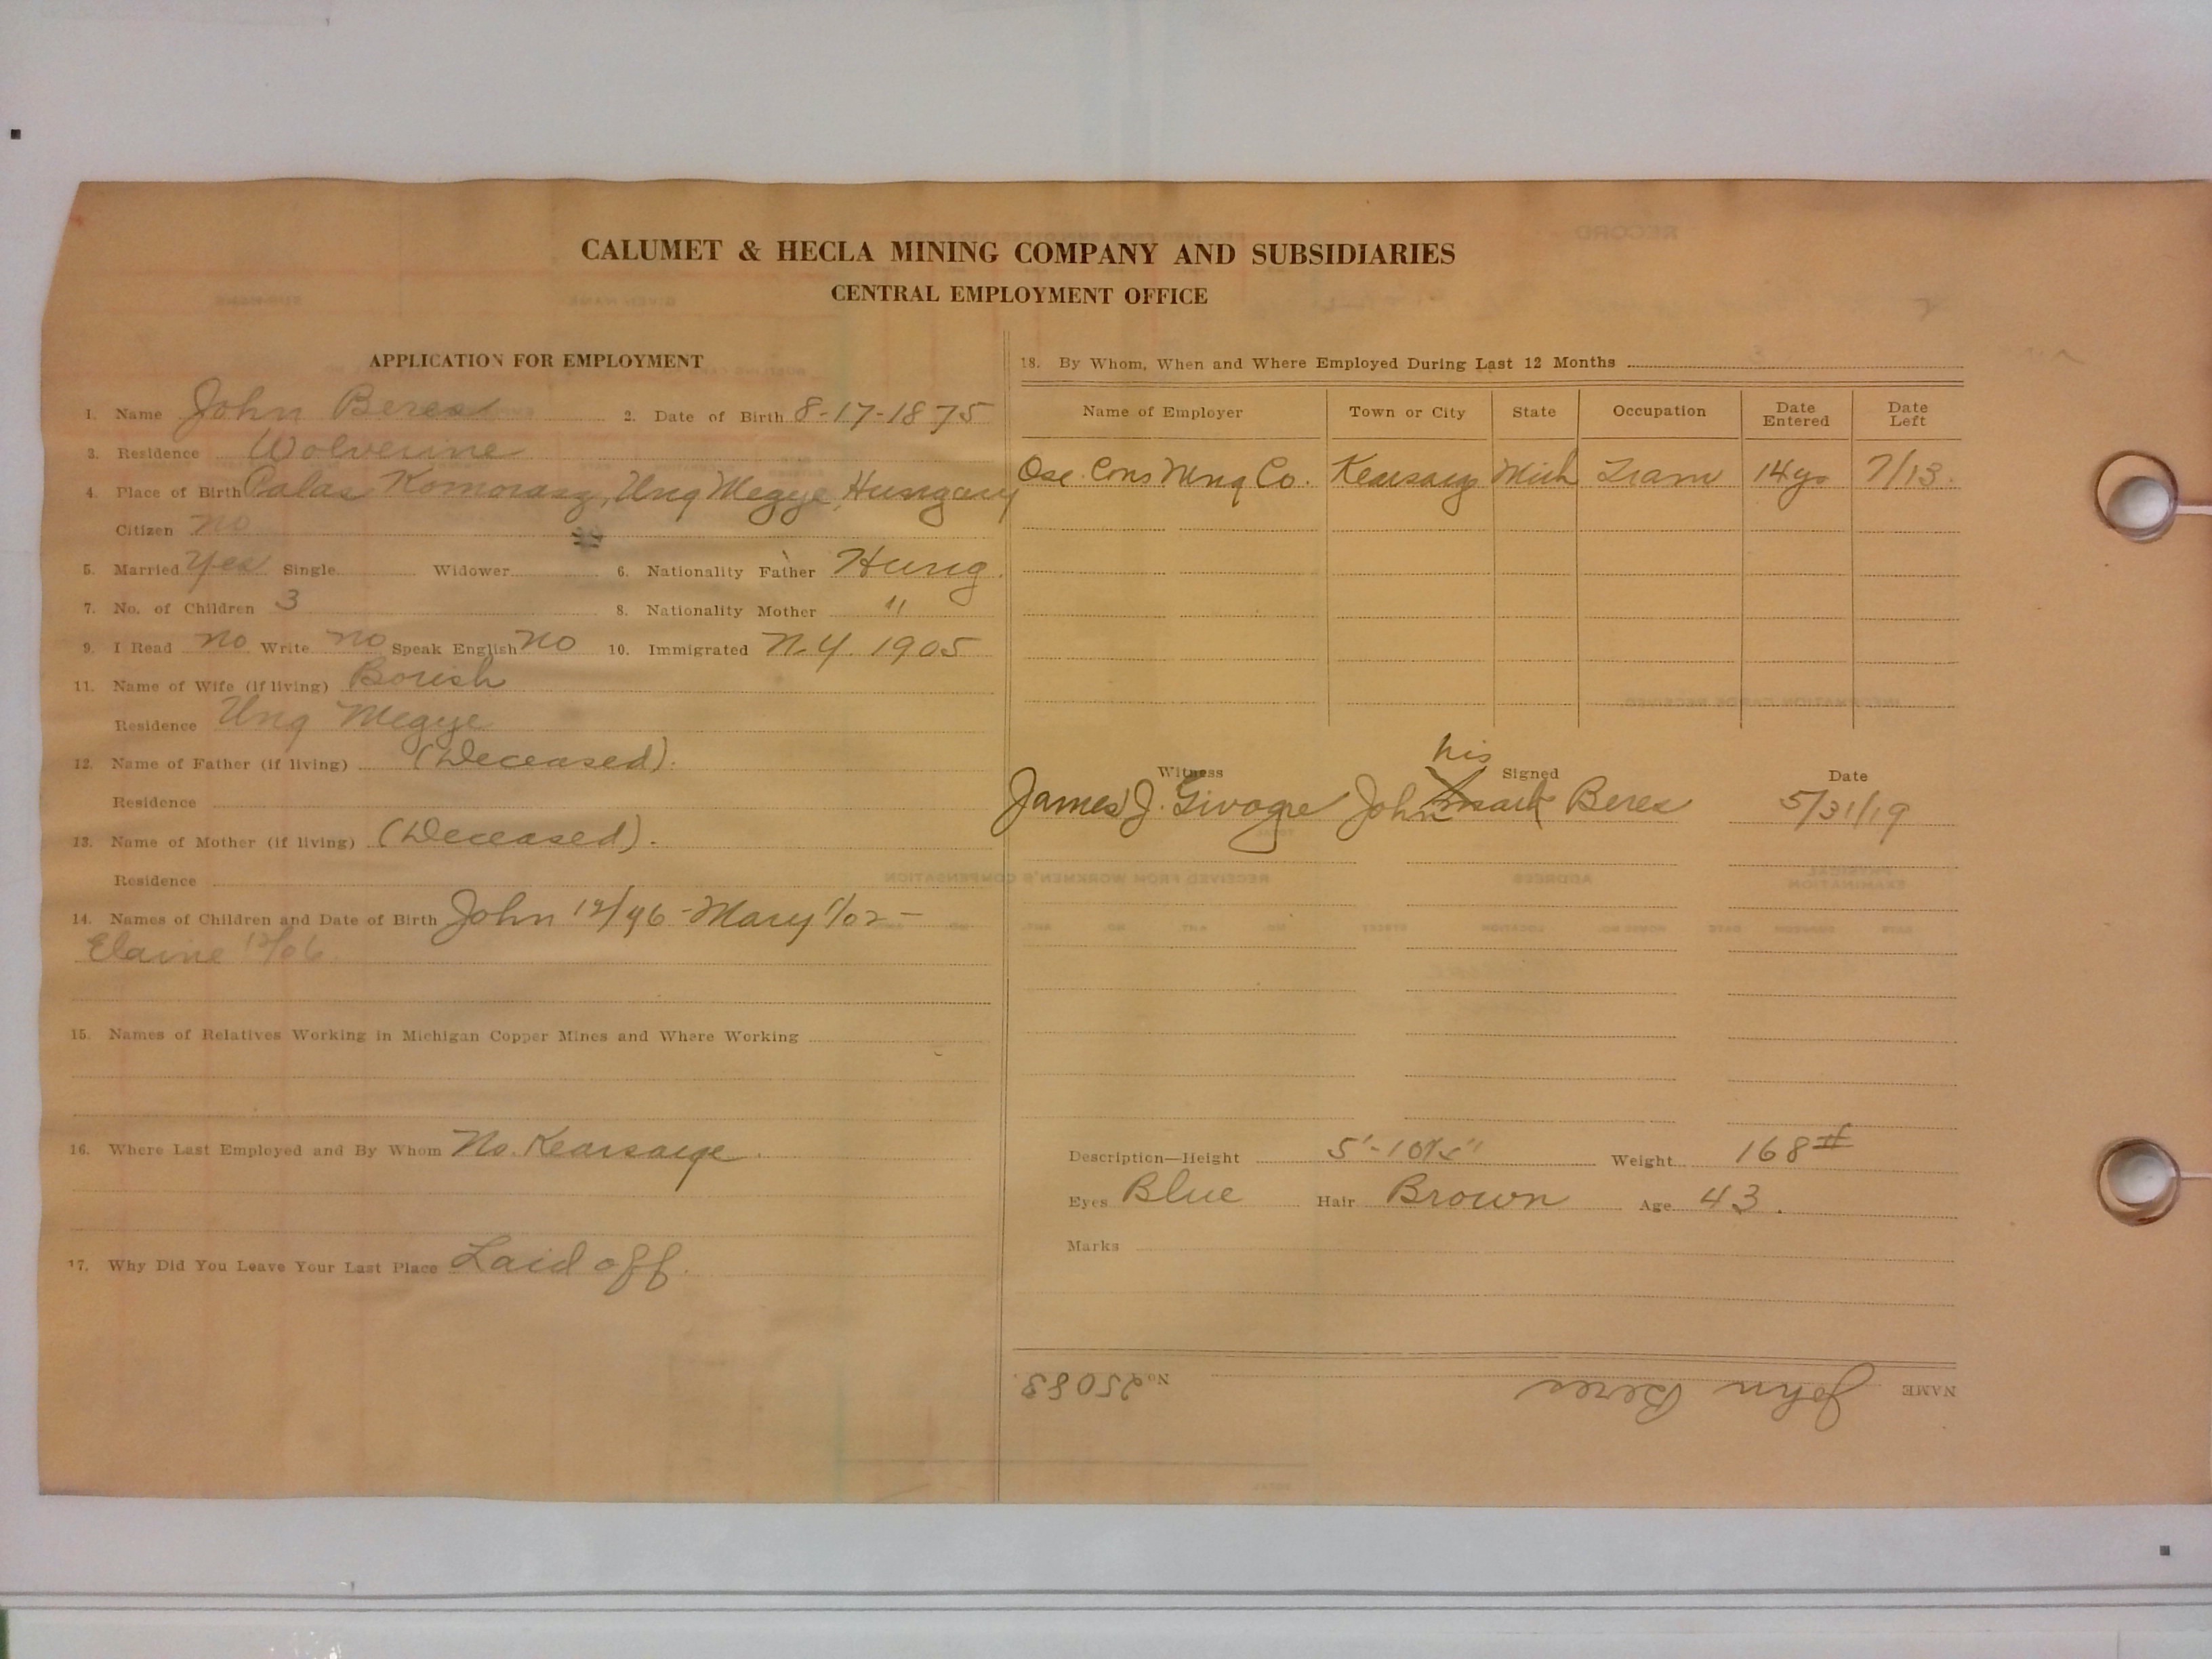 CALUMET & HECLA MINING COMPANY AND SUBSIDIARIES
CENTRAL EMPLOYMENT OFFICE
APPLICATION FOR EMPLOYMENT
1. Name John Beres 2. Date of Birth 8-17-1875
3. Residence Wolverine
4. Place of Birth Palas Komorasz, Ung Megye, Hungary
Citizen no
5. Married yes Single Widower 6. Nationality Father Hung.
7. No. of Children 3 8. Nationality Mother "
9. I Read no Write no Speak English no 10. Immigrated N.Y. 1905
11. Name of Wife (if living) Borish
Residence Ung Megye
12. Name of Father (if living) (Deceased).
Residence
13. Name of Mother (if living) (Deceased).
Residence
14. Names of Children and Date of Birth John 12/96 - Mary 1/02 -
Elaine 12/06.
15. Names of Relatives Working in Michigan Copper Mines and Where Working
16. Where Last Employed and By Whom No. Kearsarge.
17. Why Did You Leave Your Last Place Laid off.
18. By Whom, When and Where Employed During Last 12 Months
Name of Employer Town or City State Occupation Date Entered Date Left
Osc. Cons Mng Co. Kearsarge Mich Tram 14 yrs 7/13.
Witness Signed Date
his
James J. John mark Beres 5/31/19
Description—Height 5'-10 Weight 168#
Eyes Blue Hair Brown Age 43.
Marks
NAME John Beres No. 25083.